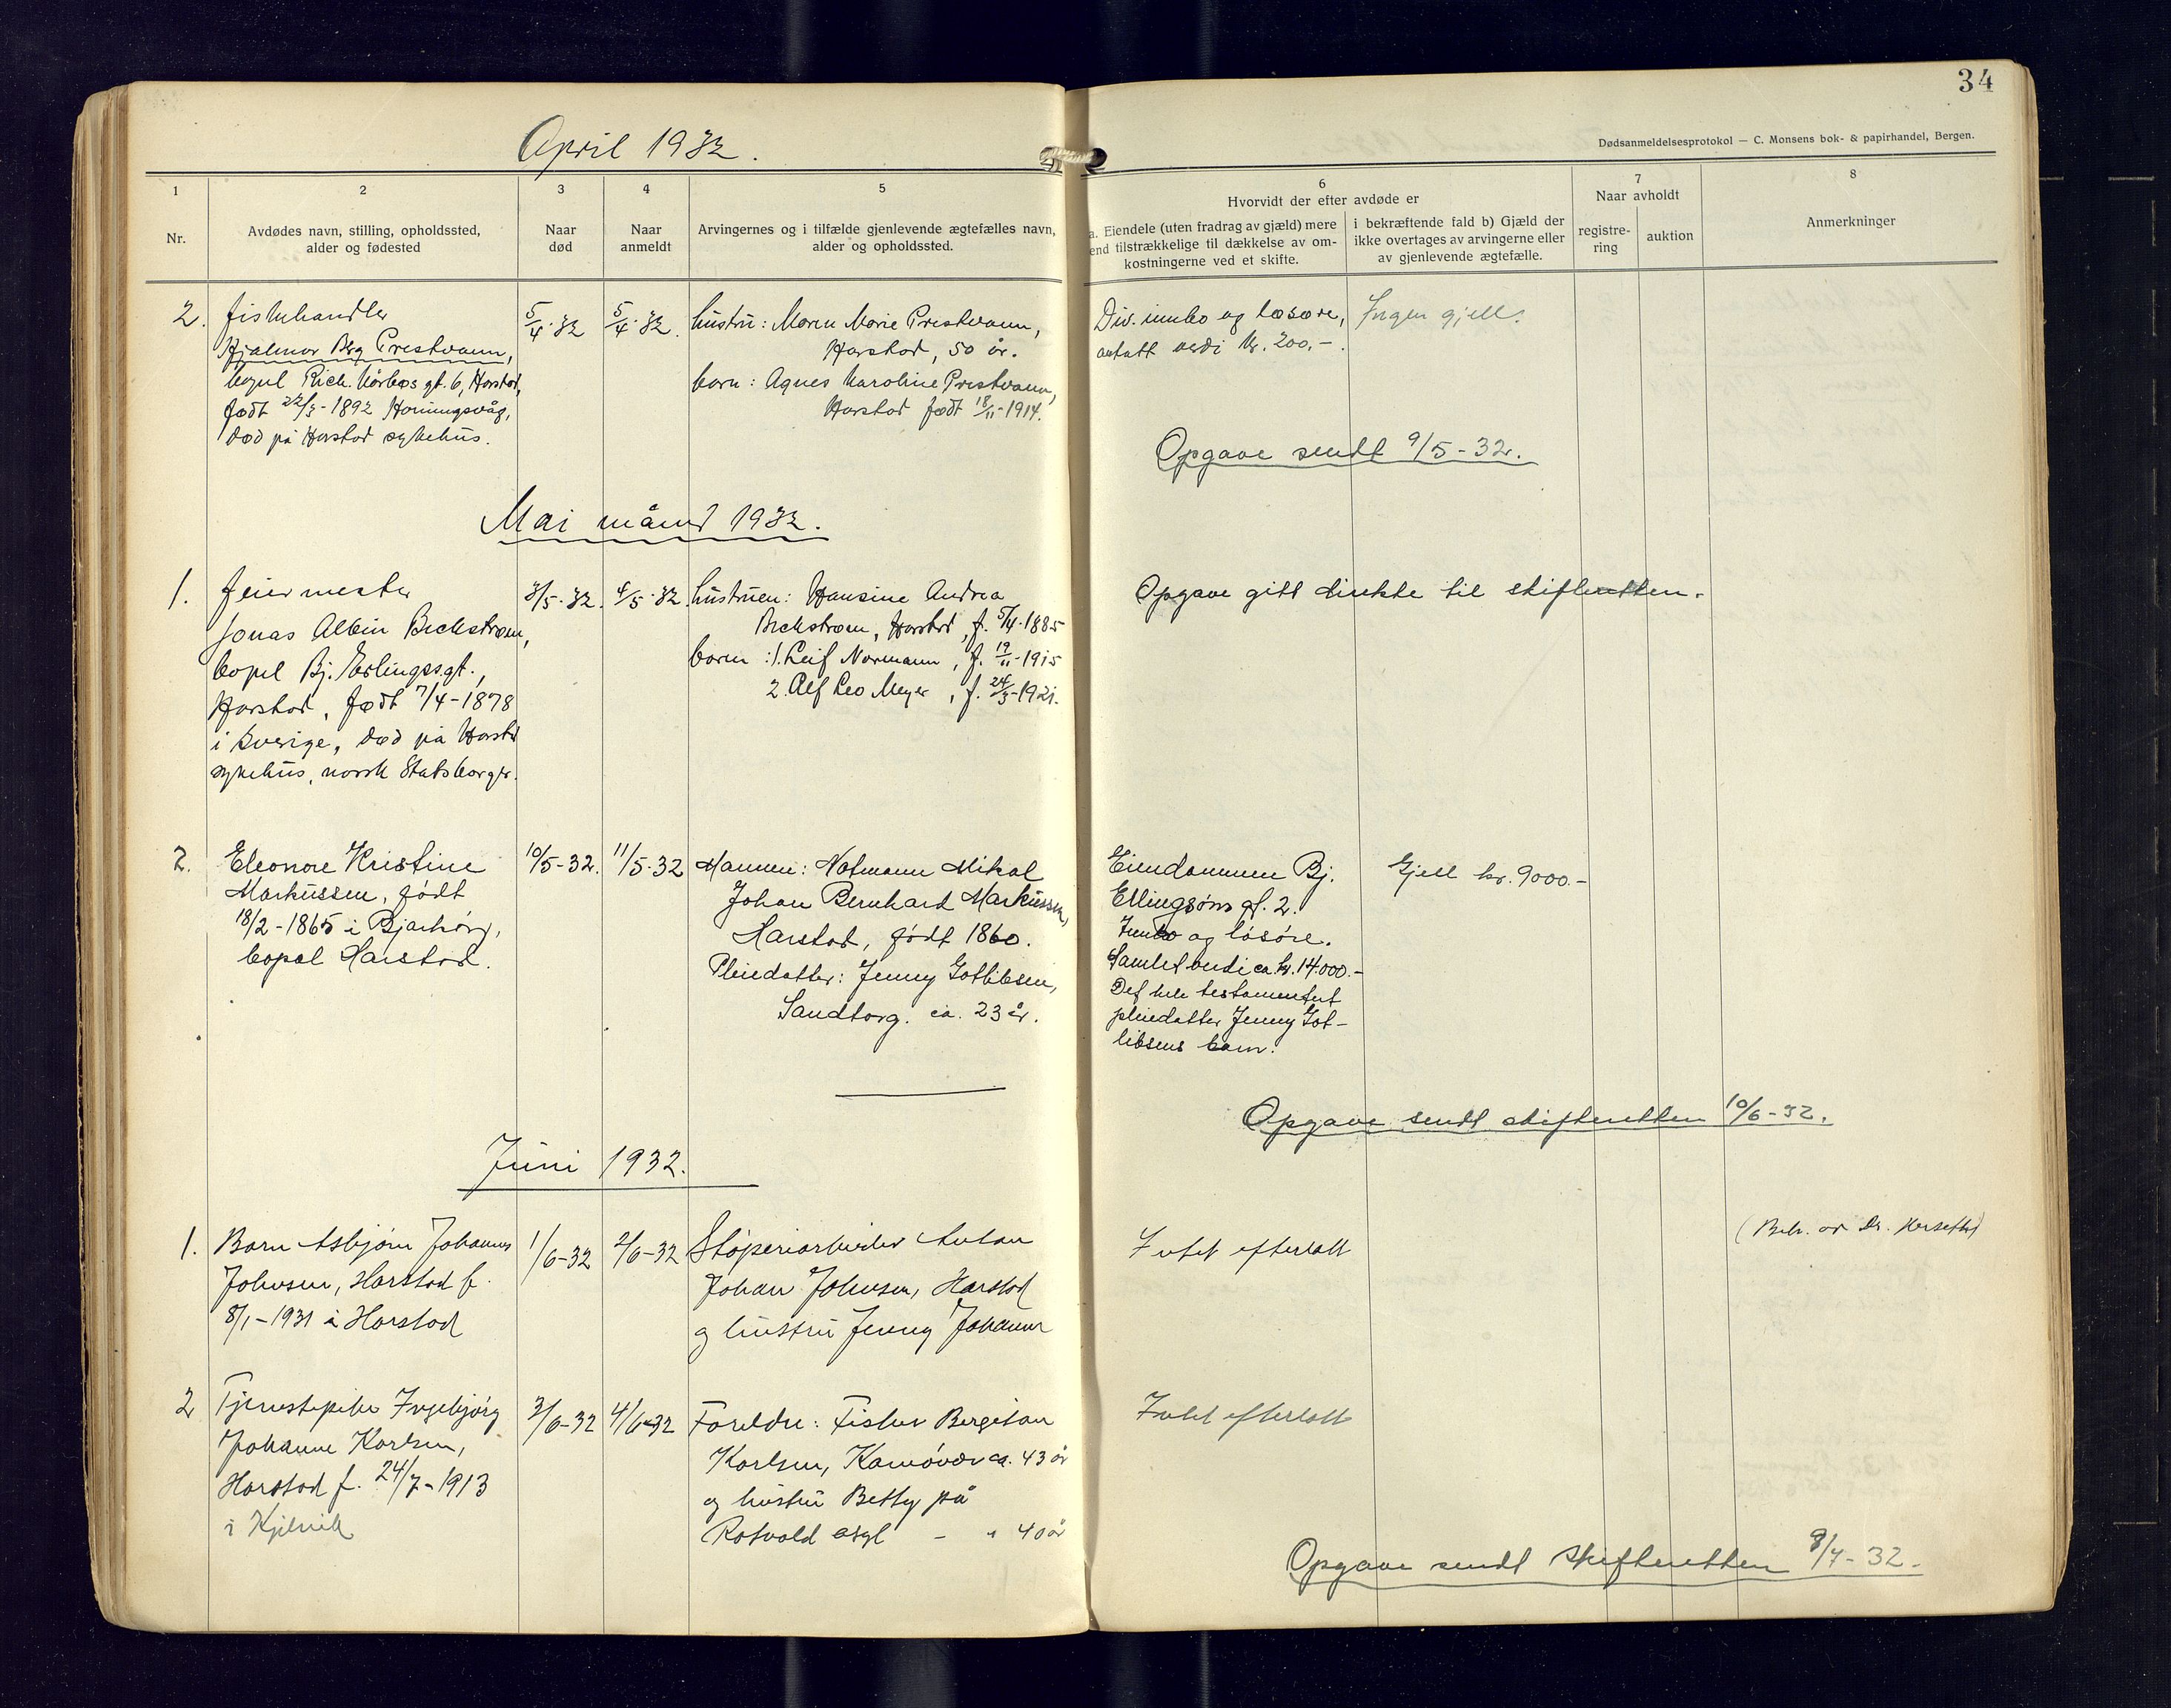 34
April 1932.
Dødsanmeldelsesprotokol — C. Monsens bok- & papirhandel, Bergen.
1
Nr.
2
Avdødes navn, stilling, opholdssted,
alder og fødested
3
Naar
død
4
Naar
anmeldt
5
Arvingernes og i tilfælde gjenlevende ægtefælles navn,
alder og opholdssted.
6
Hvorvidt der efter avdøde er
a. Eiendele (uten fradrag av gjæld) mere
end tilstrækkelige til dækkelse av om-
kostningerne ved et skifte.
i bekræftende fald b) Gjæld der
ikke overtages av arvingerne eller
av gjenlevende ægtefælle.
7
Naar avholdt
registre-
ring
auktion
8
Anmerkninger
2.
fiskehandler
Hjalmar Berg Prestvann,
bopel Rich. Kårbøs gt. 6, Harstad,
født 22/3-1892 Honningsvåg,
død på Harstad sykehus.
5/4.32
5/4.32.
hustru: Maren Marie Prestvann,
Harstad, 50 år.
barn: Agnes Karoline Prestvann,
Harstad født 18/11-1914.
Div. innbo og løsøre,
antatt verdi kr. 200,-.
Ingen gjell.
Opgave sendt 9/5-32.
Mai månd 1932.
1.
feiermester
Jonas Albin Beckstrøm,
bopel Bj. Erlingss.gt.,
Harstad, født 7/4-1878
i Sverige, død på Harstd
sykehus, norsk Statsborger.
3/5.32.
4/5.32.
hustruen: Hansine Andrea
Beckstrøm, Harstad, f. 5/4.1885
barn: 1. Leif Normann, f. 19/11-1915
2. Alf Leo Meyer, f. 24/3-1921.
Opgave gitt direkte til skifteretten.
2.
Eleonore Kristine
Markussen, født
18/2-1865 i Bjarkøy,
bopel Harstad.
10/5-32.
11/5.32
Mannen: Notmann Mikal
Johan Bernhard Markussen,
Harstad, født 1860.
Pleiedatter: Jenny Gotlibsen,
Sandtorg. ca. 23 år.
Eiendommen Bj.
Ellingsøns gt. 2.
Innbo og løsøre.
Samlet verdi ca. kr. 14.000.-
Det hele testamentert
pleiedatter Jenny Got-
libsens barn.
Gjell kr. 9000.-
Opgave sendt skifteretten 10/6-32.
Juni 1932.
1.
Barn Asbjørn Johannes
Johnsen, Harstad f.
8/1-1931 i Harstad
1/6-32
2/6-32
Støperiarbeider Anton
Johan Johnsen, Harstad
og hustru Jenny Johanne
Intet efterlatt
(Beh. av Dr. Herseth)
2
Tjenestepike Ingebjørg
Johanne Karlsen,
Harstad f. 24/7-1913
i Kjelvik
3/6-32
4/6-32
Foreldre: Fisker Bergiton
Karlsen, Kamøvær ca. 43 år
og hustru Betty på
Rotvold asyl - " 40 år
Intet efterlatt
Opgave sendt Skifteretten 8/7-32.